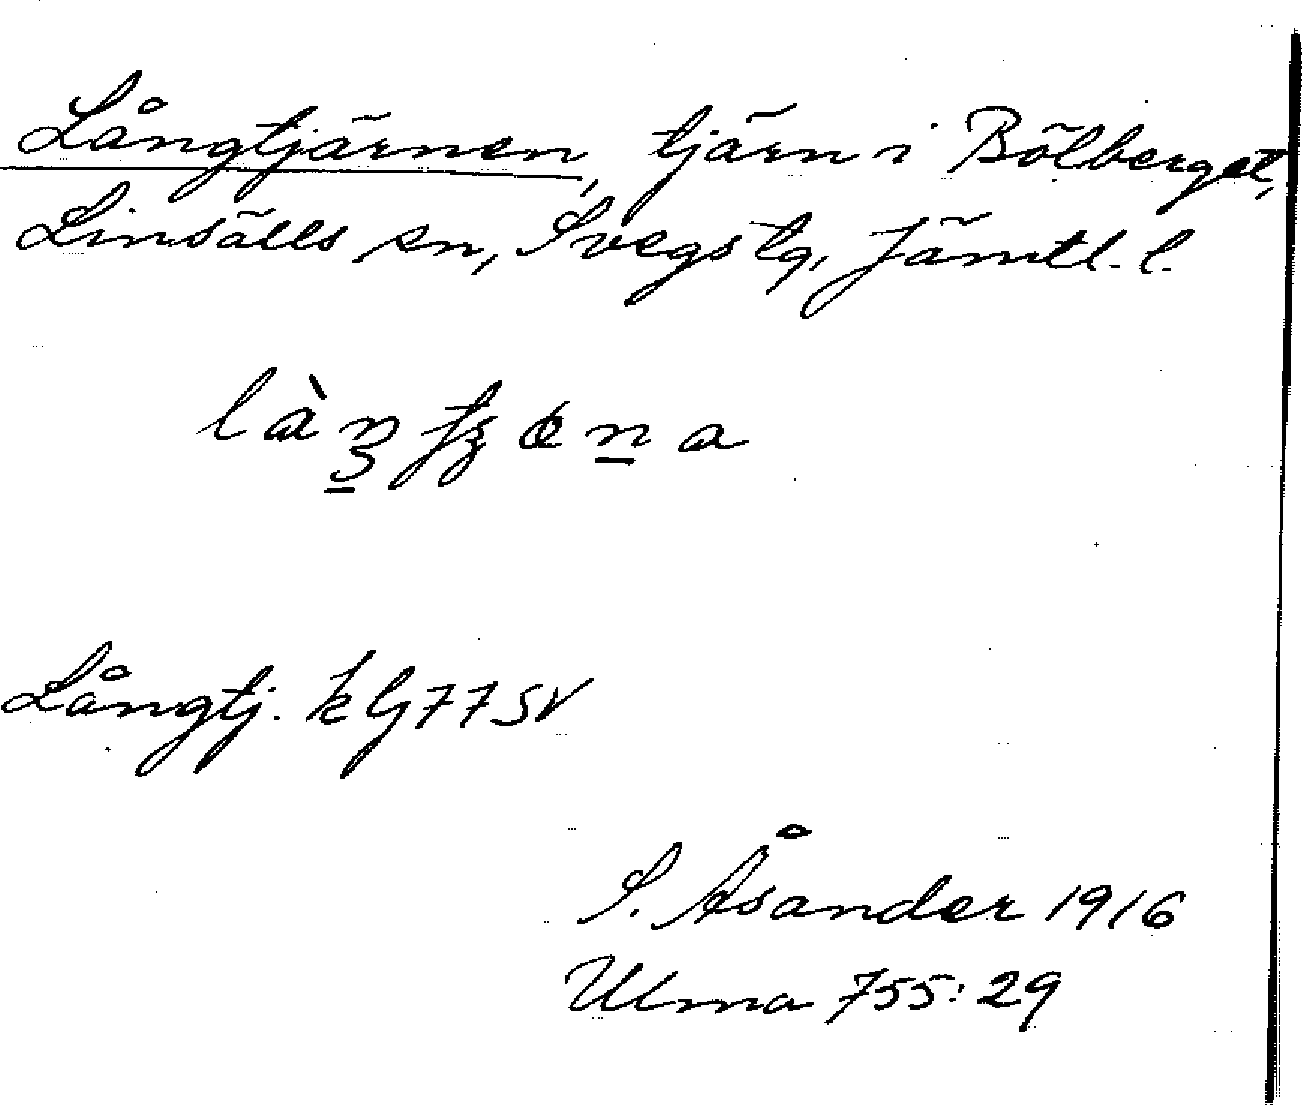 Långtjärnen, tjärn i Bölberget,
Linsälls sn, Svegs tg, Jämtl. l.
Långtj. k Gj77SV
S. Åsander 1916
Ulma 755:29